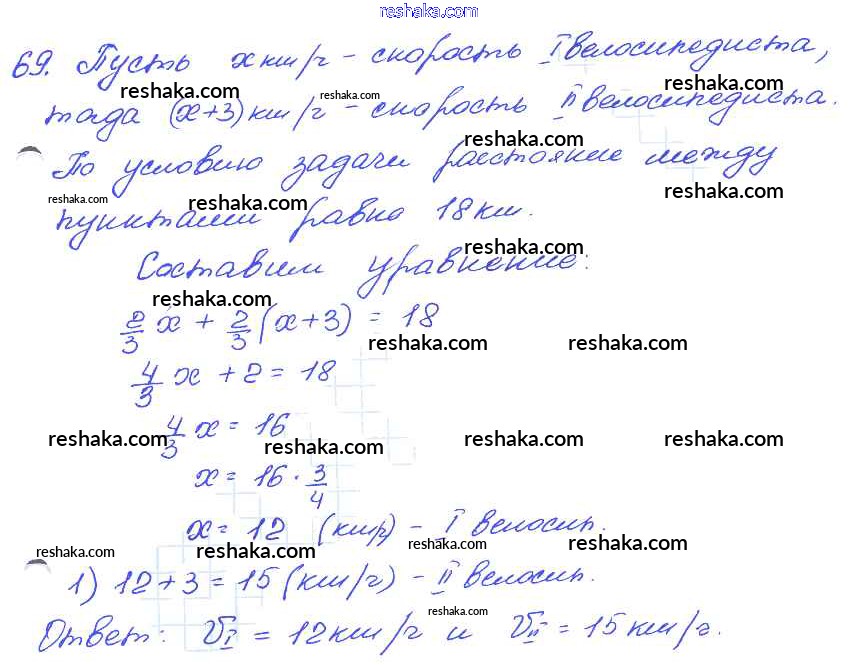 reshaka.com
69. Пусть x км/ч - скорость I велосипедиста,
reshaka.com reshaka.com reshaka.com
тогда (x+3) км/ч - скорость II велосипедиста.
reshaka.com
По условию задачи расстояние между
reshaka.com reshaka.com reshaka.com
пунктами равно 18 км.
reshaka.com
Составим уравнение:
reshaka.com
2/3 x + 2/3 (x+3) = 18
reshaka.com reshaka.com
4/3 x + 2 = 18
4/3 x = 16
reshaka.com reshaka.com reshaka.com reshaka.com
x = 16 · 3/4
x = 12 (км/ч) - I велосип.
reshaka.com reshaka.com reshaka.com reshaka.com
1) 12 + 3 = 15 (км/ч) - II велосип.
reshaka.com
Ответ: V_I = 12 км/ч и V_II = 15 км/ч.